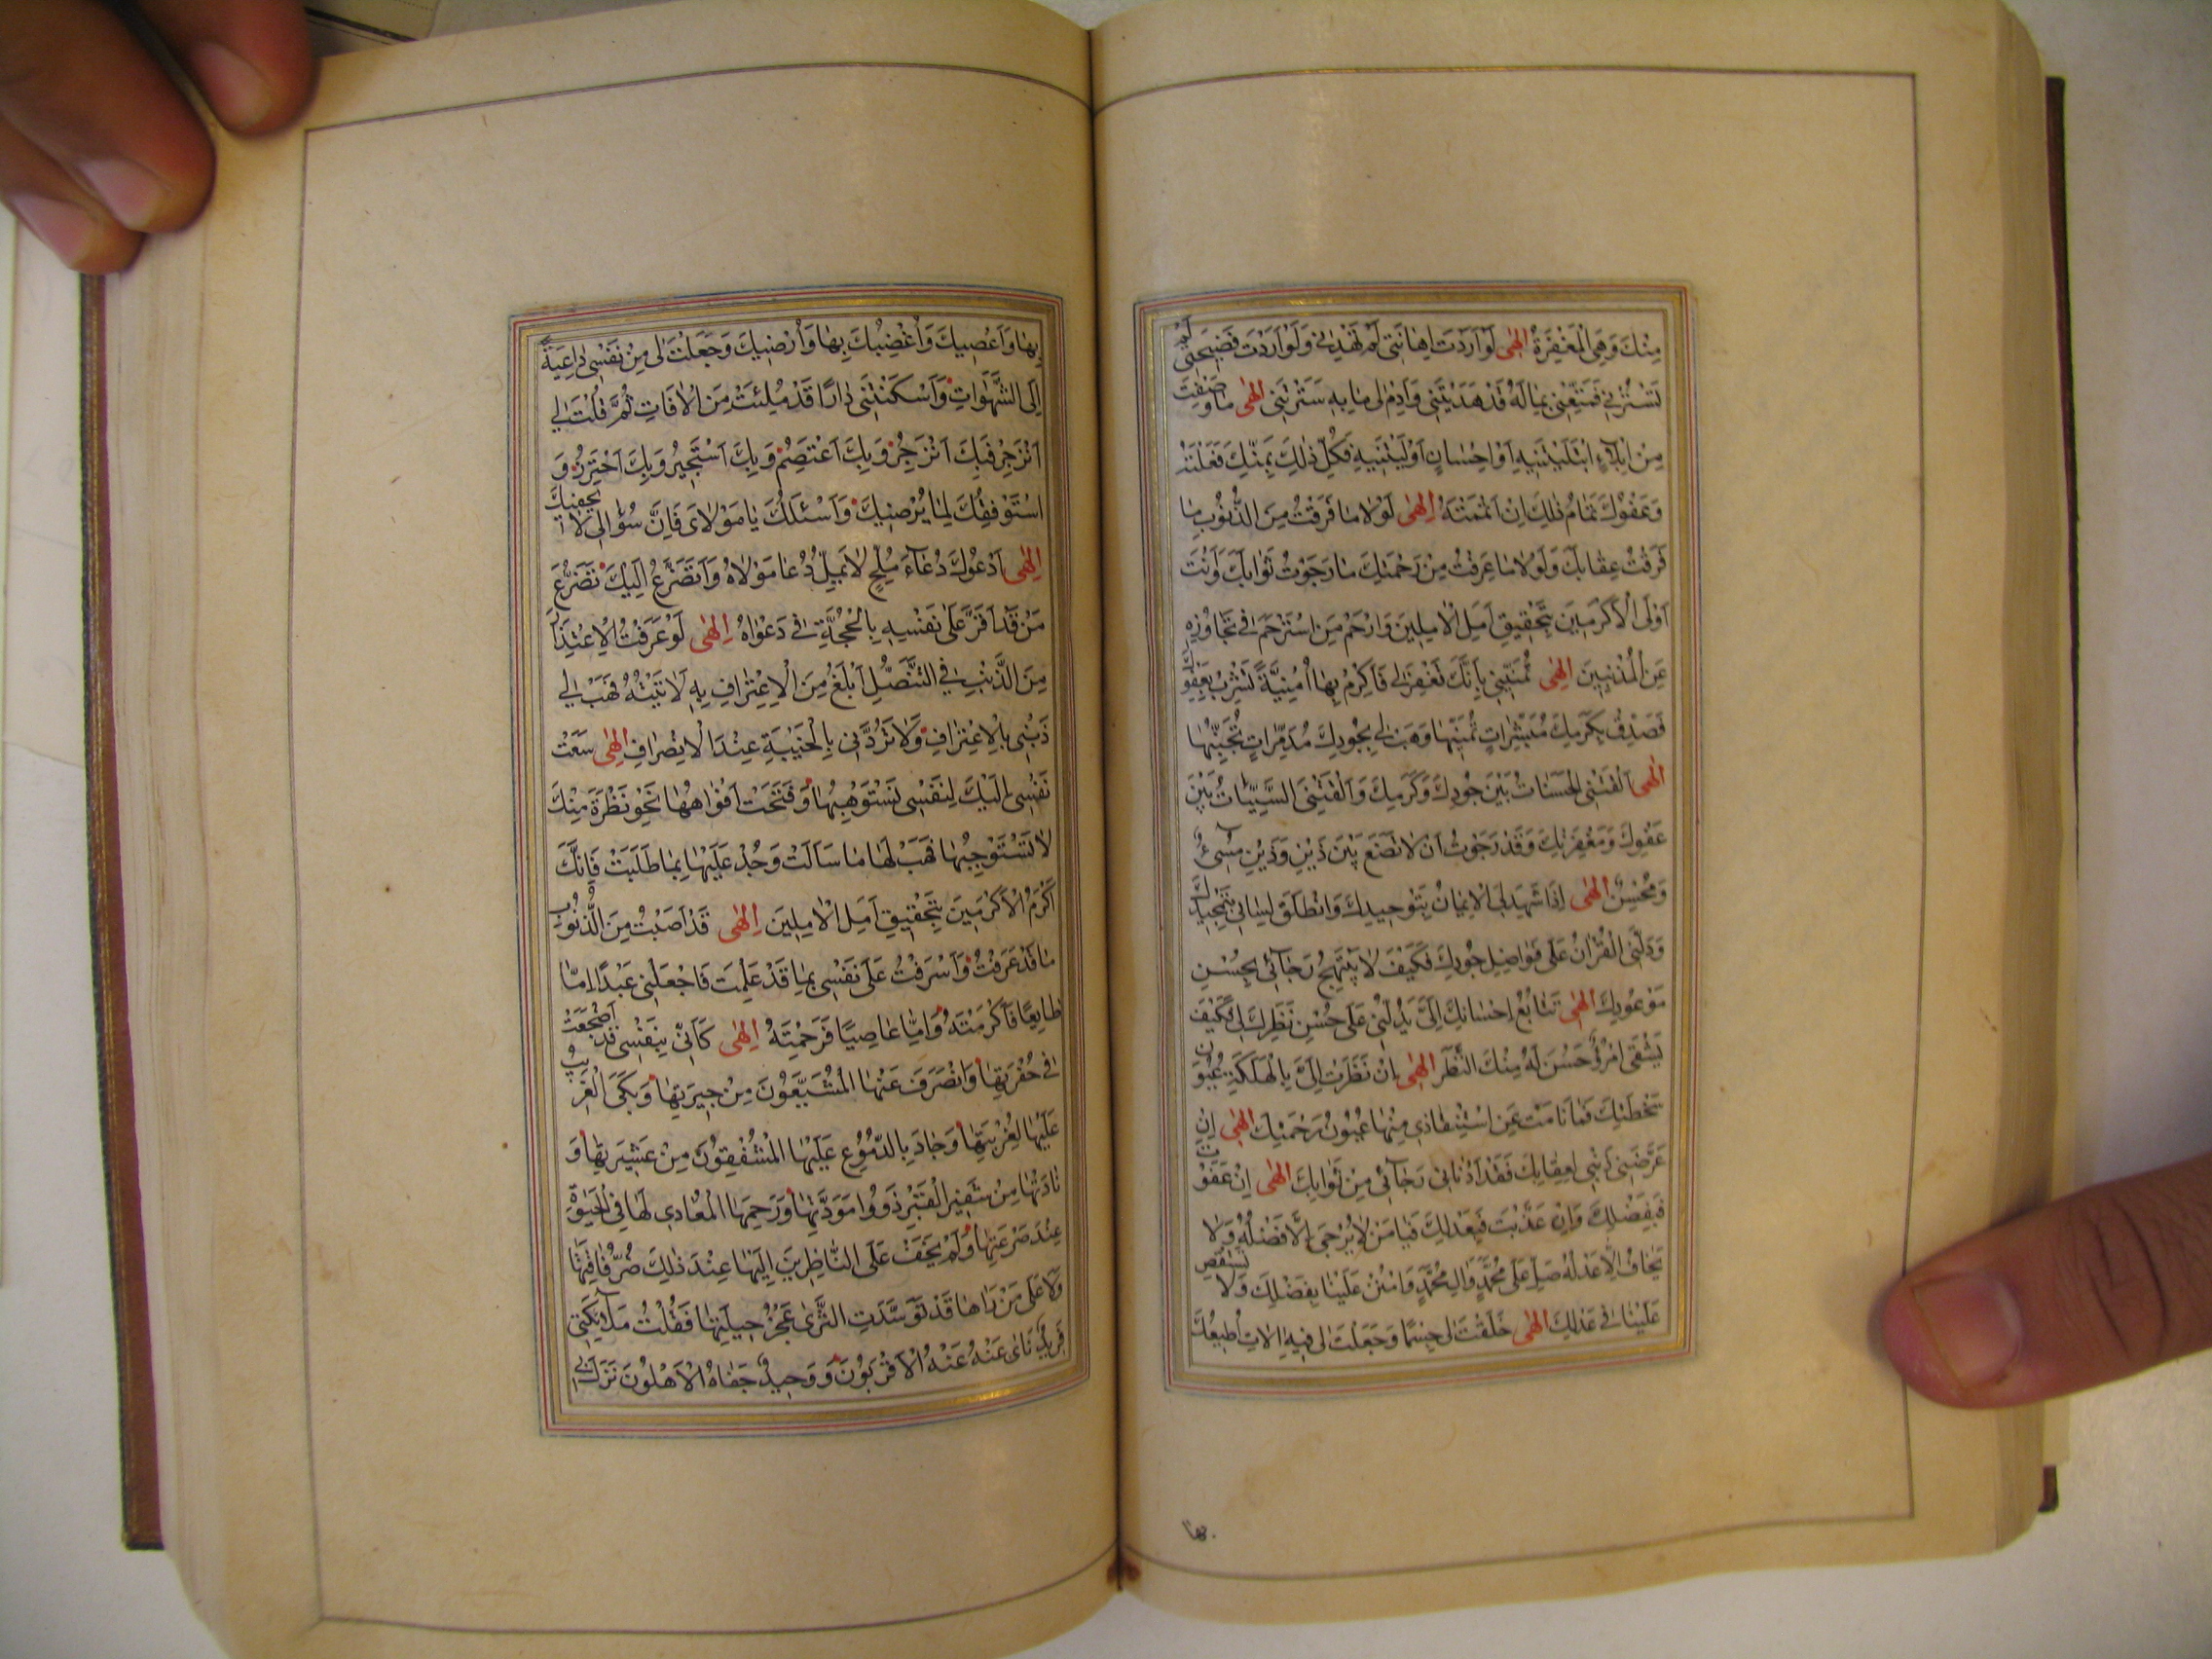 مِنْكَ وَهِيَ الْمَغْفِرَةُ اِلٰهى لَوْ اَرَدْتَ اِهانَتى لَمْ تَهْدِنى وَلَوْ اَرَدْتَ فَضيحَتى لَمْ
تَسْتُرْنى فَمَتِّعْنى بِما لَهُ قَدْ هَدَيْتَنى وَاَدِمْ لى ما بِهِ سَتَرْتَنى اِلٰهى ما وَصَفْتَ
مِنْ بَلاءٍ ابْتَلَيْتَنيهِ اَوْ اِحْسانٍ اَوْلَيْتَنيهِ فَكُلُّ ذٰلِكَ بِمَنِّكَ فَعَلْتَهُ
وَعَفْوُكَ تَمامُ ذٰلِكَ اِنْ اَتْمَمْتَهُ اِلٰهى لَوْلا ما قَرَفْتُ مِنَ الذُّنُوبِ ما
فَرِقْتُ عِقابَكَ وَلَوْلا ما عَرَفْتُ مِنْ رَحْمَتِكَ ما رَجَوْتُ ثَوابَكَ وَاَنْتَ
اَوْلَى الْاَكْرَمينَ بِتَحْقيقِ اَمَلِ الْامِلينَ وَارْحَمُ مَنِ اسْتُرْحِمَ فى تَجاوُزِهِ
عَنِ الْمُذْنِبينَ اِلٰهى تُمَنّينى بِاَنَّكَ تَغْفِرُ لى فَاَكْرِمْ بِها اُمْنِيَّةً بِعَفْوِكَ
فَصَدِّقْ بِكَرَمِكَ مُبَشِّراتِ تَمَنّيها وَهَبْ لى بِجُودِكَ مُدَمِّراتِ تَجَنّيها
اِلٰهى اَلْقَتْنى الْحَسَناتُ بَيْنَ جُودِكَ وَكَرَمِكَ وَاَلْقَتْنى السَّيِّئاتُ بَيْنَ
عَفْوِكَ وَمَغْفِرَتِكَ وَقَدْ رَجَوْتُ اَنْ لا تَضَعَ بَيْنَ ذَيْنِ وَذَيْنِ مُسىءٌ
وَمُحْسِنٌ اِلٰهى اِذا شَهِدَ لىَ الْايمانُ بِتَوْحيدِكَ وَانْطَلَقَ لِسانى بِتَمْجيدِكَ
وَدَلَّنِى الْقُرْانُ عَلى فَواضِلِ جُودِكَ فَكَيْفَ لا يَبْتَهِجُ رَجائى بِحُسْنِ
مَوْعُودِكَ اِلٰهى تَتابُعُ اِحْسانِكَ اِلَىَّ يَدُلُّنى عَلى حُسْنِ نَظَرِكَ لى فَكَيْفَ
يَشْقَى امْرُؤٌ حَسُنَ لَهُ مِنْكَ النَّظَرُ اِلٰهى اِنْ نَظَرَتْ اِلَىَّ بِالْهَلَكَةِ عُيُونُ
سَخْطَتِكَ فَما نامَتْ عَنِ اسْتِنْقاذى مِنْها عُيُونُ رَحْمَتِكَ اِلٰهى اِنْ
عَرَّضَنى ذَنْبى لِعِقابِكَ فَقَدْ اَدْنانى رَجائى مِنْ ثَوابِكَ اِلٰهى اِنْ عَفَوْتَ
فَبِفَضْلِكَ وَاِنْ عَذَّبْتَ فَبِعَدْلِكَ فَيا مَنْ لا يُرْجى اِلّا فَضْلُهُ وَلا
يُخافُ اِلّا عَدْلُهُ صَلِّ عَلى مُحَمَّدٍ وَالِ مُحَمَّدٍ وَامْنُنْ عَلَيْنا بِفَضْلِكَ وَلا تَسْتَقْصِ
عَلَيْنا فى عَدْلِكَ اِلٰهى خَلَقْتَ لى جِسْمًا وَجَعَلْتَ لى فيهِ الاتٍ اُطيعُكَ
بها
بِها وَاَعْصيكَ وَاُغْضِبُكَ بِها وَاُرْضيكَ وَجَعَلْتَ لى مِنْ نَفْسى داعِيَةً
اِلَى الشَّهَواتِ وَاَسْكَنْتَنى دارًا قَدْ مُلِئَتْ مِنَ الْافاتِ ثُمَّ قُلْتَ لى
اَنْزَجِرْ فَبِكَ اَنْزَجِرُ وَبِكَ اَعْتَصِمُ وَبِكَ اَسْتَجيرُ وَبِكَ اَحْتَرِزُ وَ
اَسْتَوْفِقُكَ لِما يُرْضيكَ وَاَسْئَلُكَ يا مَوْلاىَ فَاِنَّ سُؤالى لا يُحْفيكَ
اِلٰهى اَدْعُوكَ دُعاءَ مُلِحٍّ لا يَمِلُّ دُعا مَوْلاهُ وَاَتَضَرَّعُ اِلَيْكَ تَضَرُّعَ
مَنْ قَدْ اَقَرَّ عَلى نَفْسِهِ بِالْحُجَّةِ فى دَعْواهُ اِلٰهى لَوْ عَرَفْتُ الْاِعْتِذارَ
مِنَ الذَّنْبِ فى التَّنَصُّلِ اَبْلَغَ مِنَ الْاِعْتِرافِ بِهِ لَاَتَيْتُهُ فَهَبْ لى
ذَنْبى بِالْاِعْتِرافِ وَلا تَرُدَّنى بِالْخَيْبَةِ عِنْدَ الْاِنْصِرافِ اِلٰهى سَعَتْ
نَفْسى اِلَيْكَ لِنَفْسى تَسْتَوْهِبُها وَفَتَحَتْ اَفْواهَها نَحْوَ نَظْرَةٍ مِنْكَ
لا تَسْتَوْجِبُها فَهَبْ لَها ما سَاَلَتْ وَجُدْ عَلَيْها بِما طَلَبَتْ فَاِنَّكَ
اَكْرَمُ الْاَكْرَمينَ بِتَحْقيقِ اَمَلِ الْامِلينَ اِلٰهى قَدْ اَصَبْتُ مِنَ الذُّنُوبِ
ما قَدْ عَرَفْتَ وَاَسْرَفْتُ عَلى نَفْسى بِما قَدْ عَلِمْتَ فَاجْعَلْنى عَبْدًا اِمّا
طايِعًا فَاَكْرَمْتَهُ وَاِمّا عاصِيًا فَرَحِمْتَهُ اِلٰهى كَاَنّى بِنَفْسى قَدْ اُضْجِعَتْ
فى حُفْرَتِها وَانْصَرَفَ عَنْها الْمُشَيِّعُونَ مِنْ جيرَتِها وَبَكَى الْغَريبُ
عَلَيْها لِغُرْبَتِها وَجادَ بِالدُّمُوعِ عَلَيْها الْمُشْفِقُونَ مِنْ عَشيرَتِها وَ
نادَتْها مِنْ شَفيرِ الْقَبْرِ ذَوُوا مَوَدَّتِها وَرَحِمَها الْمُعادى لَها فِى الْحَيوةِ
عِنْدَ صَرْعَتِها وَلَمْ يَخْفَ عَلَى النّاظِرينَ اِلَيْها عِنْدَ ذٰلِكَ ضُرُّ فاقَتِها
وَلا عَلى مَنْ رَاها قَدْ تَوَسَّدَتِ الثَّرى عَجْزُ حيلَتِها فَقُلْتَ مَلائِكَتى
فَريدٌ نَاى عَنْهُ عَنْهُ الْاَقْرَبُونَ وَوَحيدٌ جَفاهُ الْاَهْلُونَ نَزَلَ بى